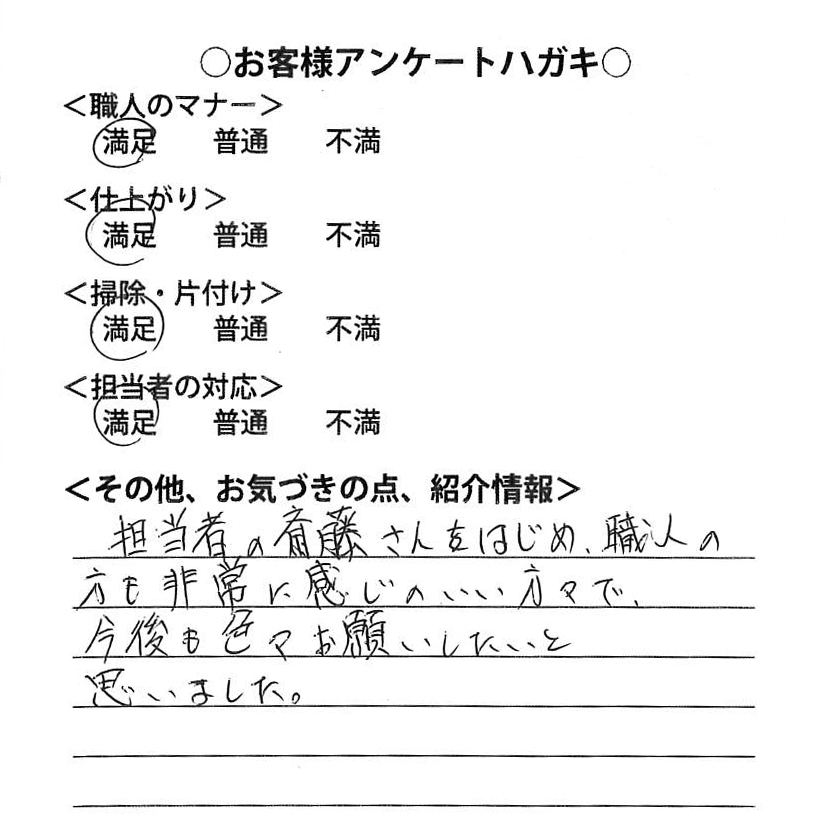 ○お客様アンケートハガキ○
＜職人のマナー＞
満足 普通 不満
＜仕上がり＞
満足 普通 不満
＜掃除・片付け＞
満足 普通 不満
＜担当者の対応＞
満足 普通 不満
＜その他、お気づきの点、紹介情報＞
担当者の斎藤さんをはじめ、職人の
方も非常に感じのいい方々で、
今後も色々お願いしたいと
思いました。